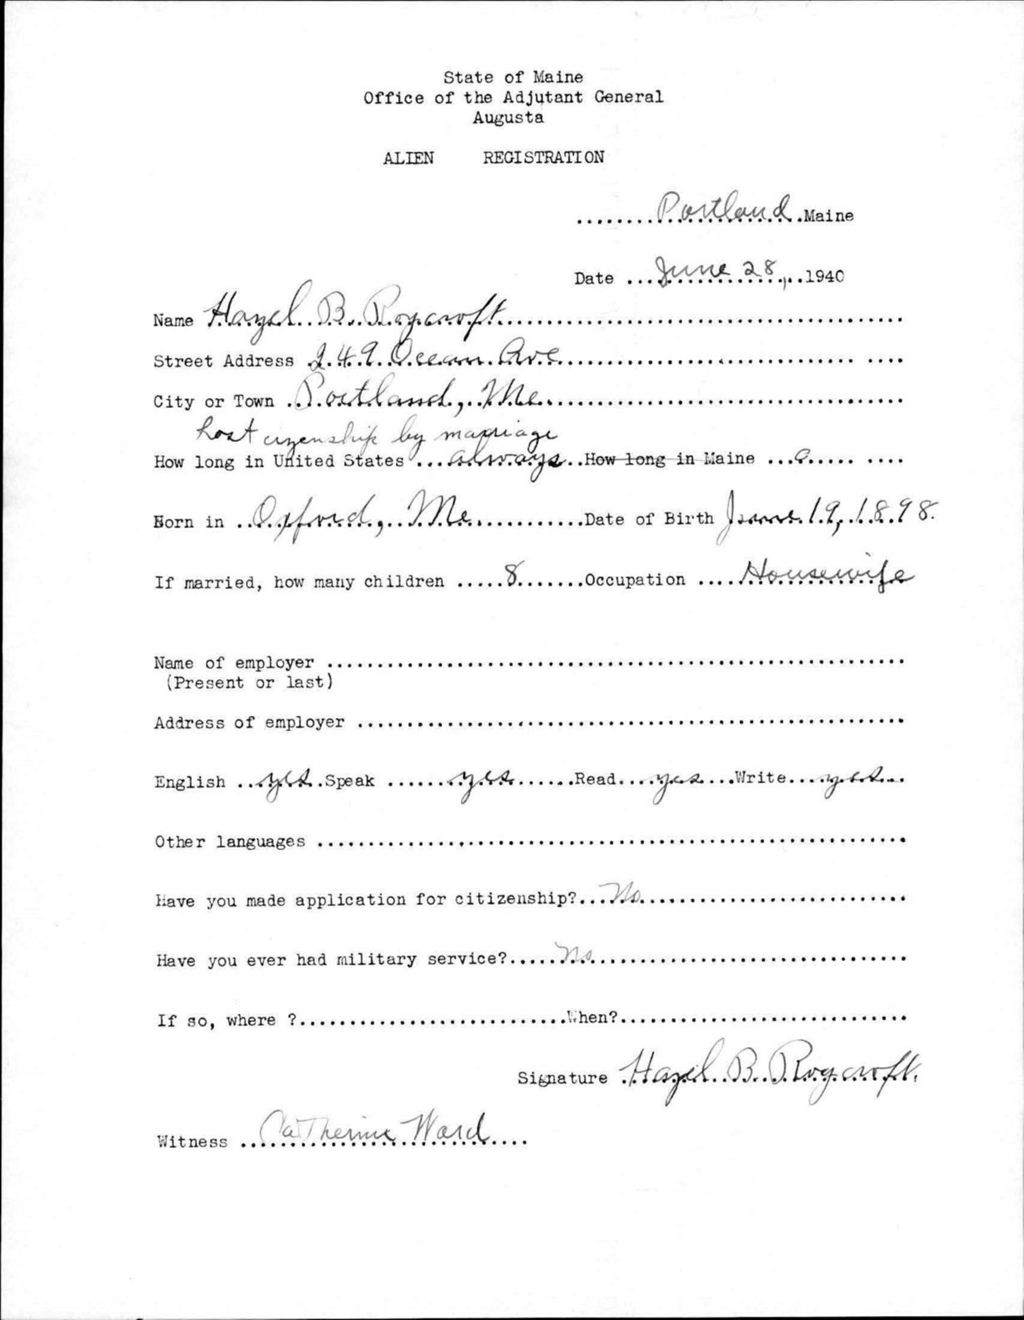 State of Maine
Office of the Adjutant General
Augusta
ALIEN REGISTRATION
........Portland.Maine
Date ...June 28,..1940
Name Hazel B. Roycroft
Street Address 249 Ocean Ave
City or Town Portland, Me.
Lost cizenship by marriage
How long in United States ...always..How long in Maine ...
Born in ..Oxford, Me...Date of Birth June 19, 1898.
If married, how many children .....8.......Occupation ....Housewife
Name of employer ....................
(Present or last)
Address of employer ....................
English ..yes.Speak .......yes......Read...yes...Write...yes...
Other languages ....................
Have you made application for citizenship?...No....................
Have you ever had military service?.....No....................
If so, where ?....................When?....................
Signature Hazel B. Roycroft.
Witness Catherine Ward....